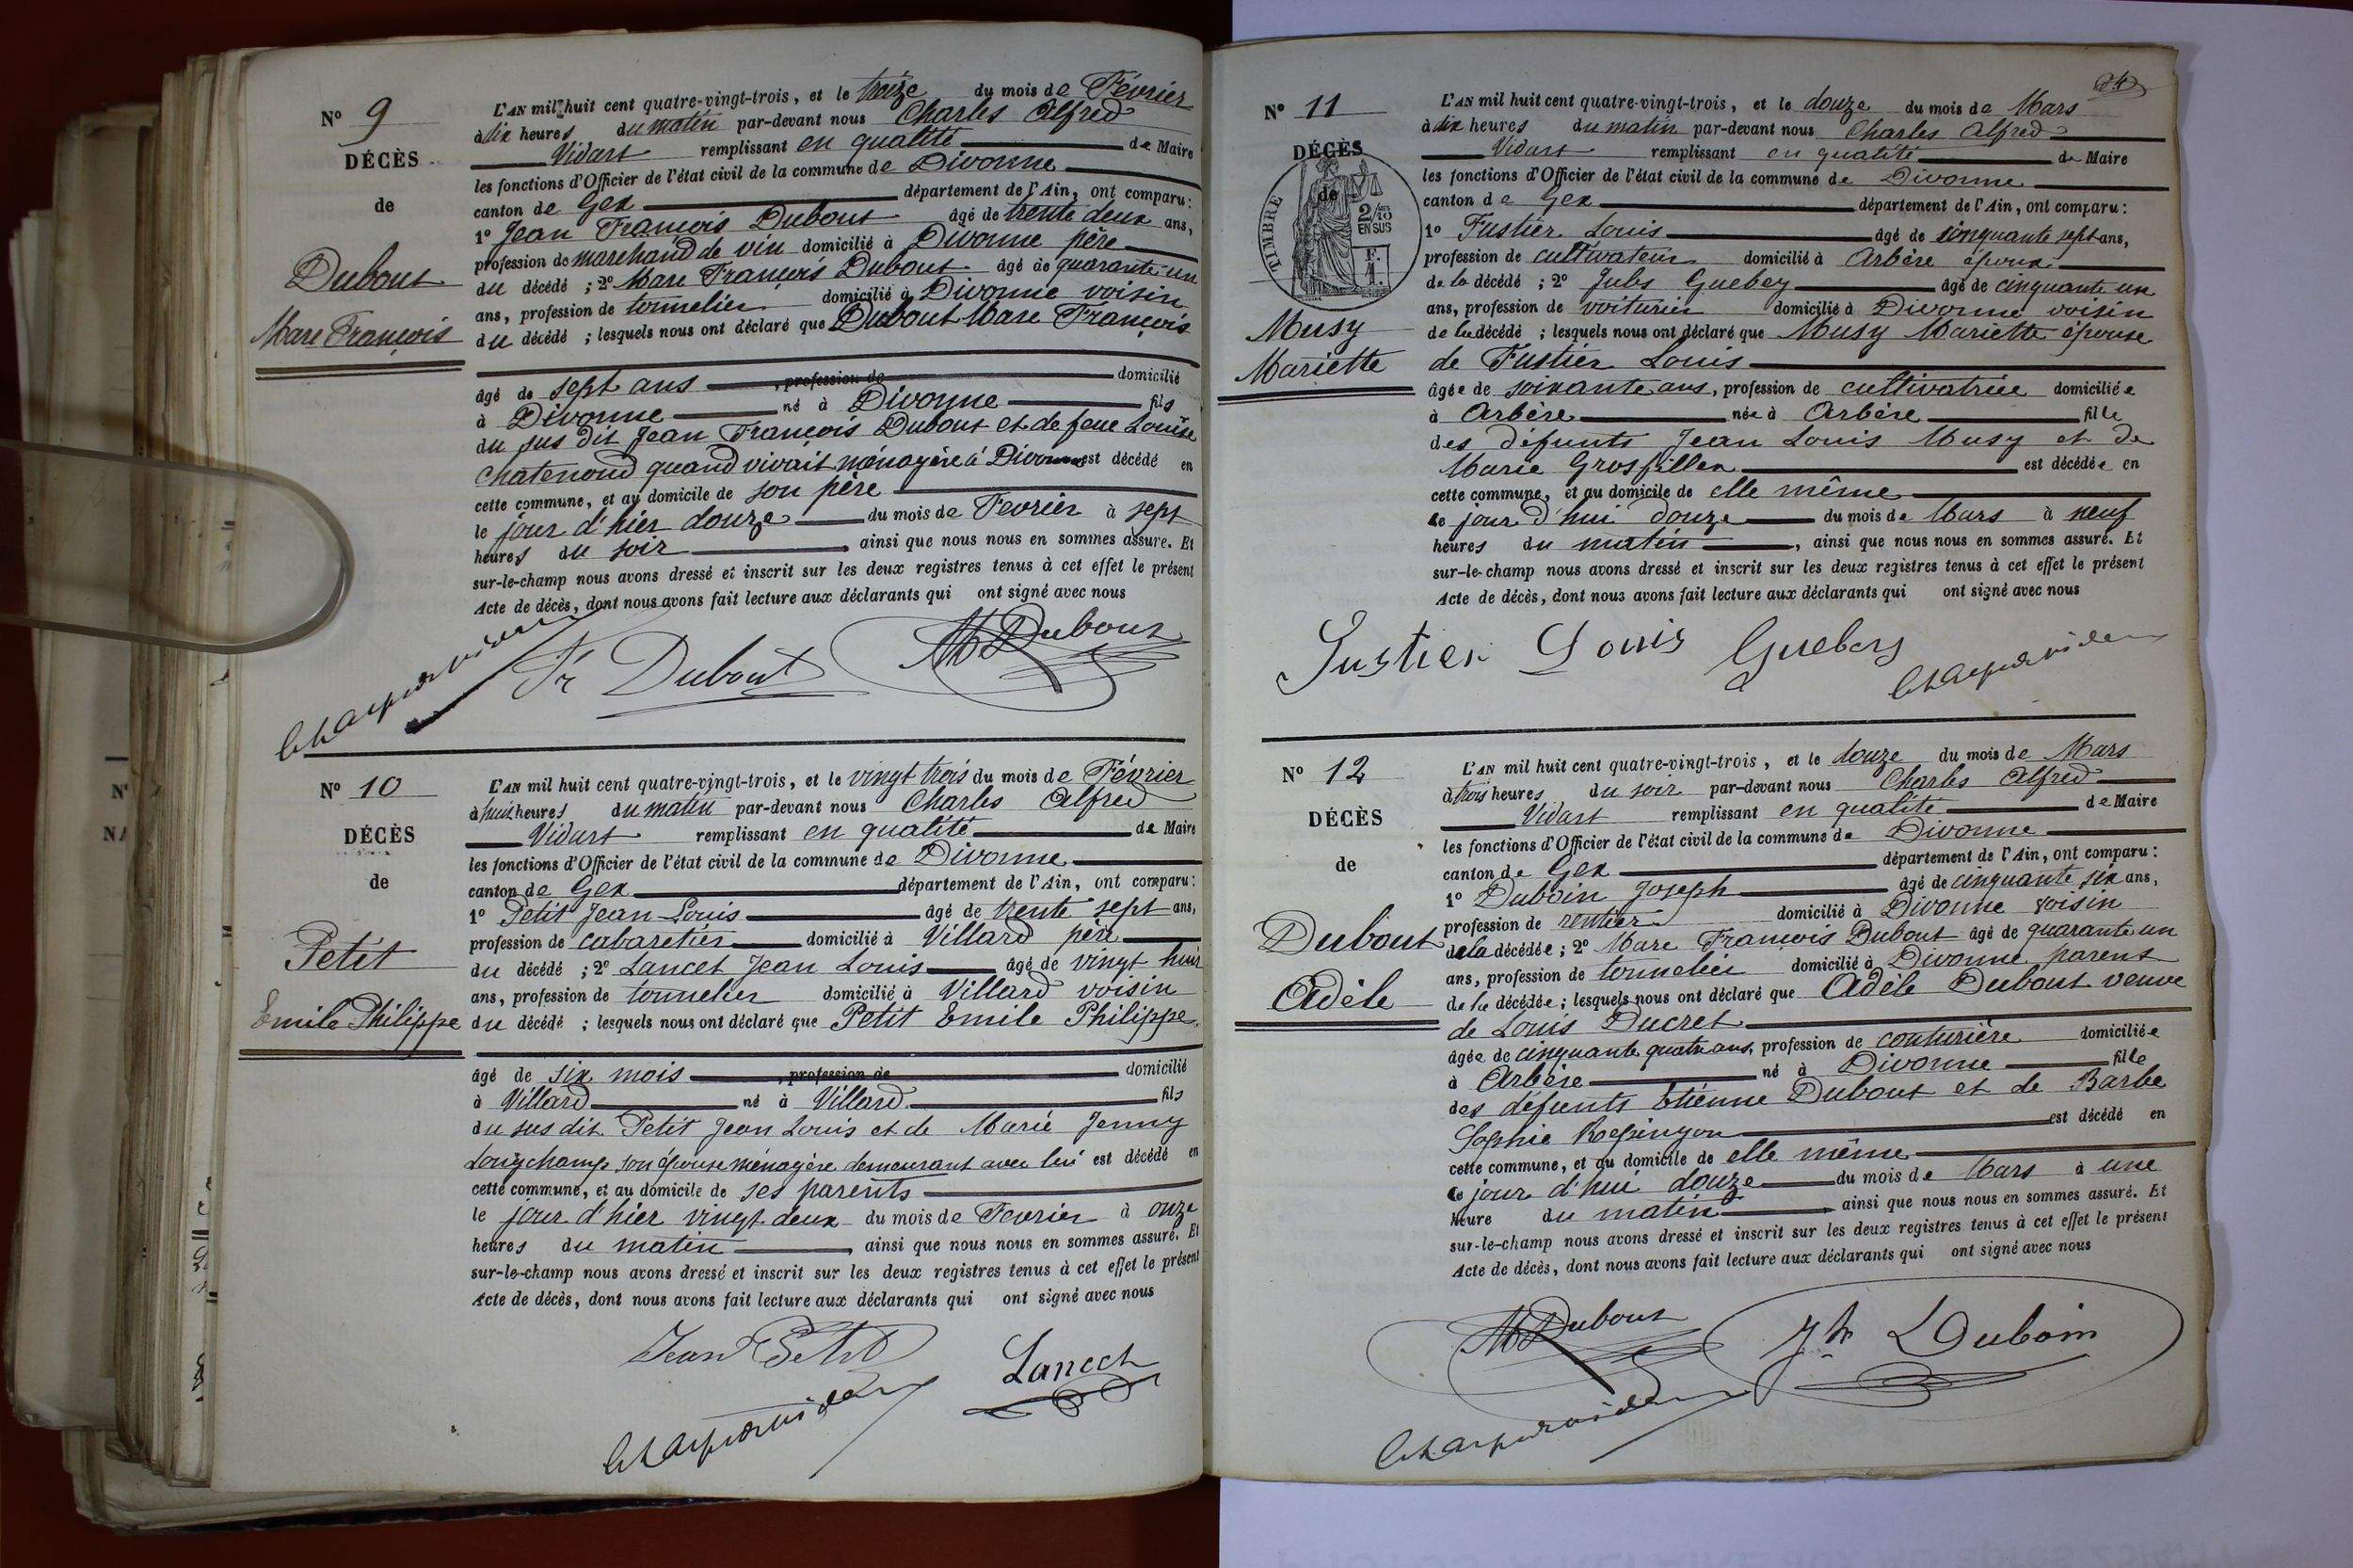 N° 9
DÉCÈS
de
Dubout
Marc François
L'AN mil huit cent quatre-vingt-trois, et le treize du mois de Février
à dix heures du matin par-devant nous Charles Alfred
Vidart remplissant en qualité de Maire
les fonctions d'Officier de l'état civil de la commune de Divonne
canton de Gex département de l'Ain, ont comparu :
1° Jean François Dubout âgé de trente deux ans,
profession de marchand de vin domicilié à Divonne père
du décédé ; 2° Marc François Dubout âgé de quarante un
ans, profession de tonnelier domicilié à Divonne voisin
du décédé ; lesquels nous ont déclaré que Dubout Marc François
âgé de sept ans , profession de domicilié
à Divonne né à Divonne fils
du sus dit Jean François Dubout et de feue Louise
Chatenoud quand vivait ménagère à Divonne est décédé en
cette commune, et au domicile de son père
le jour d'hier douze du mois de Fevrier à sept
heures du soir ainsi que nous nous en sommes assuré. Et
sur-le-champ nous avons dressé et inscrit sur les deux registres tenus à cet effet le présent
Acte de décès, dont nous avons fait lecture aux déclarants qui ont signé avec nous
Fr Dubout MDubout
N° 10
DÉCÈS
de
Petit
Emile Philippe
L'AN mil huit cent quatre-vingt-trois, et le vingt trois du mois de Février
à huit heures du matin par-devant nous Charles Alfred
Vidart remplissant en qualité de Maire
les fonctions d'Officier de l'état civil de la commune de Divonne
canton de Gex département de l'Ain, ont comparu :
1° Petit Jean Louis âgé de trente sept ans,
profession de cabaretier domicilié à Villard père
du décédé ; 2° Lancet Jean Louis âgé de vingt huit
ans, profession de tonnelier domicilié à Villard voisin
du décédé ; lesquels nous ont déclaré que Petit Emile Philippe
âgé de six mois , profession de domicilié
à Villard né à Villard fils
du sus dit Petit Jean Louis et de Marie Jenny
Longchamp son épouse ménagère demeurant avec lui est décédé en
cette commune, et au domicile de ses parents
le jour d'hier vingt deux du mois de Fevrier à onze
heures du matin , ainsi que nous nous en sommes assuré. Et
sur-le-champ nous avons dressé et inscrit sur les deux registres tenus à cet effet le présent
Acte de décès, dont nous avons fait lecture aux déclarants qui ont signé avec nous
Jean Petit
N° 11
DÉCÈS
de
TIMBRE
2/10
EN SUS
F.
1.
Musy
Mariette
L'AN mil huit cent quatre-vingt-trois, et le douze du mois de Mars
à dix heures du matin par-devant nous Charles Alfred
Vidart remplissant en qualité de Maire
les fonctions d'Officier de l'état civil de la commune de Divonne
canton de Gex département de l'Ain, ont comparu :
1° Fustier Louis âgé de cinquante sept ans,
profession de cultivateur domicilié à Arbère époux
de la décédé ; 2° Jules Guebey âgé de cinquante un
ans, profession de voiturier domicilié à Divonne voisin
de la décédé ; lesquels nous ont déclaré que Musy Mariette épouse
de Fustier Louis
âgée de soixante ans, profession de cultivatrice domiciliée
à Arbère née à Arbère fille
des défunts Jean Louis Musy et de
Marie Grosfillex est décédée en
cette commune, et au domicile de elle même
le jour d'hui douze du mois de Mars à neuf
heures du matin , ainsi que nous nous en sommes assuré. Et
sur-le-champ nous avons dressé et inscrit sur les deux registres tenus à cet effet le présent
Acte de décès, dont nous avons fait lecture aux déclarants qui ont signé avec nous
Fustier Louis
N° 12
DÉCÈS
de
Dubout
Adèle
L'AN mil huit cent quatre-vingt-trois, et le douze du mois de Mars
à trois heures du soir par-devant nous Charles Alfred
Vidart remplissant en qualité de Maire
les fonctions d'Officier de l'état civil de la commune de Divonne
canton de Gex département de l'Ain, ont comparu :
1° Duboin Joseph âgé de cinquante six ans,
profession de rentier domicilié à Divonne voisin
de la décédée ; 2° Marc François Dubout âgé de quarante un
ans, profession de tonnelier domicilié à Divonne parent
de la décédée ; lesquels nous ont déclaré que Adèle Dubout veuve
de Louis Ducret
âgée de cinquante quatre ans, profession de couturière domiciliée
à Arbère né à Divonne fille
des défunts Etienne Dubout et de Barbe
Sophie est décédé en
cette commune, et au domicile de elle même
le jour d'hui douze du mois de Mars à une
heure du matin ainsi que nous nous en sommes assuré. Et
sur-le-champ nous avons dressé et inscrit sur les deux registres tenus à cet effet le présent
Acte de décès, dont nous avons fait lecture aux déclarants qui ont signé avec nous
MDubout Jh Duboin